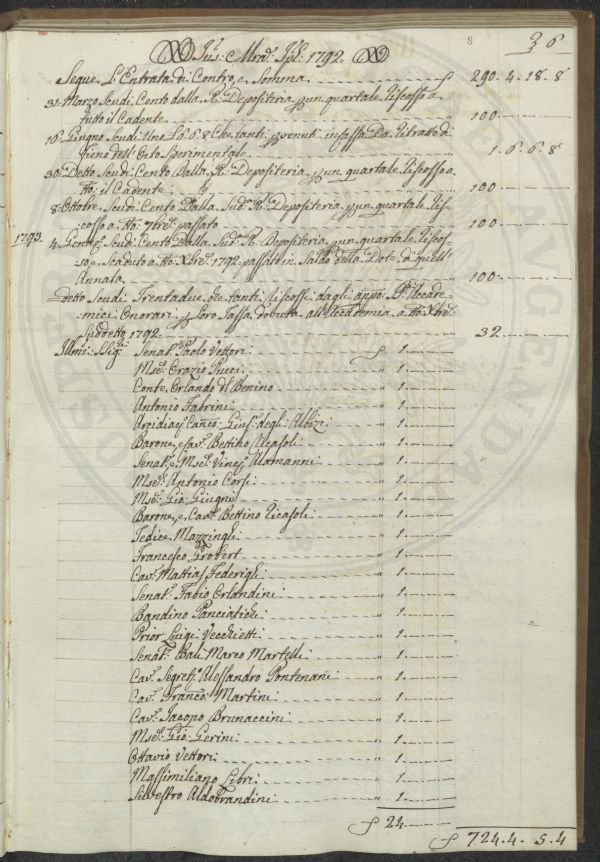 36
8
1792
Segue L'Entrata di Contro, e Somma f 290. 4. 18. 8
31. Marzo Scudi Cento dalla R. Depositeria p un quartale riscosso a
tutto il Cadente 100
16. Giugno Scudi Uno 6. 6. 8 Che tanti pvenuti in Cassa Da Ritratto di
Fieno dell'Orto Sperimentale 1. 6. 6. 8
30. Detto Scudi Cento Dalla R. Depositeria, p un quartale Riscosso a
tto il Cadente 100
8. Ottobre Scudi Cento Dalla Sud.a R. Depositeria, p un quartale ris-
cosso a tto 7bre passato 100
1793. 4. Genn.o Scudi Cento Dalla Sud.a R. Depositeria, p un quartale risco-
so, e Scaduto a tto Xbre 1792 passati in Saldo della Dote di quell'
Annata 100
detto Scudi Trentadue, che tanti riscossi dagli app.o Accade-
mici Onorari p loro Tassa dovuta all'Accademia a tto Xbre
Suddetto 1792 32
Illmi: Sig.i Senat.e Paolo Vettori f 1
Mse. Orazio Pucci " 1
Conte Orlando del Benino " 1
Antonio Fabrini " 1
Arcidiac.o Canco. Gius.e degli Albizi " 1
Barone, e Cav. Bettino Ricasoli " 1
Senat.e, e Mse. Vinc.o Alamanni " 1
Mse. Antonio Corsi " 1
Mse. Gio. Giugni " 1
Barone, e Cav. Bettino Ricasoli " 1
Fedice Mazzinghi " 1
Francesco " 1
Cav. Mattias Federighi " 1
Senat.e Fabio Orlandini " 1
Bandino Panciatichi " 1
Prior Luigi Vecchietti " 1
Senat.e Balì Marco Martelli " 1
Cav. Segret.o Alessandro Pontenani " 1
Cav. Franco. Martini " 1
Cav. Jacopo Brunaccini " 1
Mse. Gio. Gerini " 1
Ottavio Vettori " 1
Massimiliano Libri " 1
Silvestro Aldobrandini " 1
f 24
f 724. 4. 5. 4